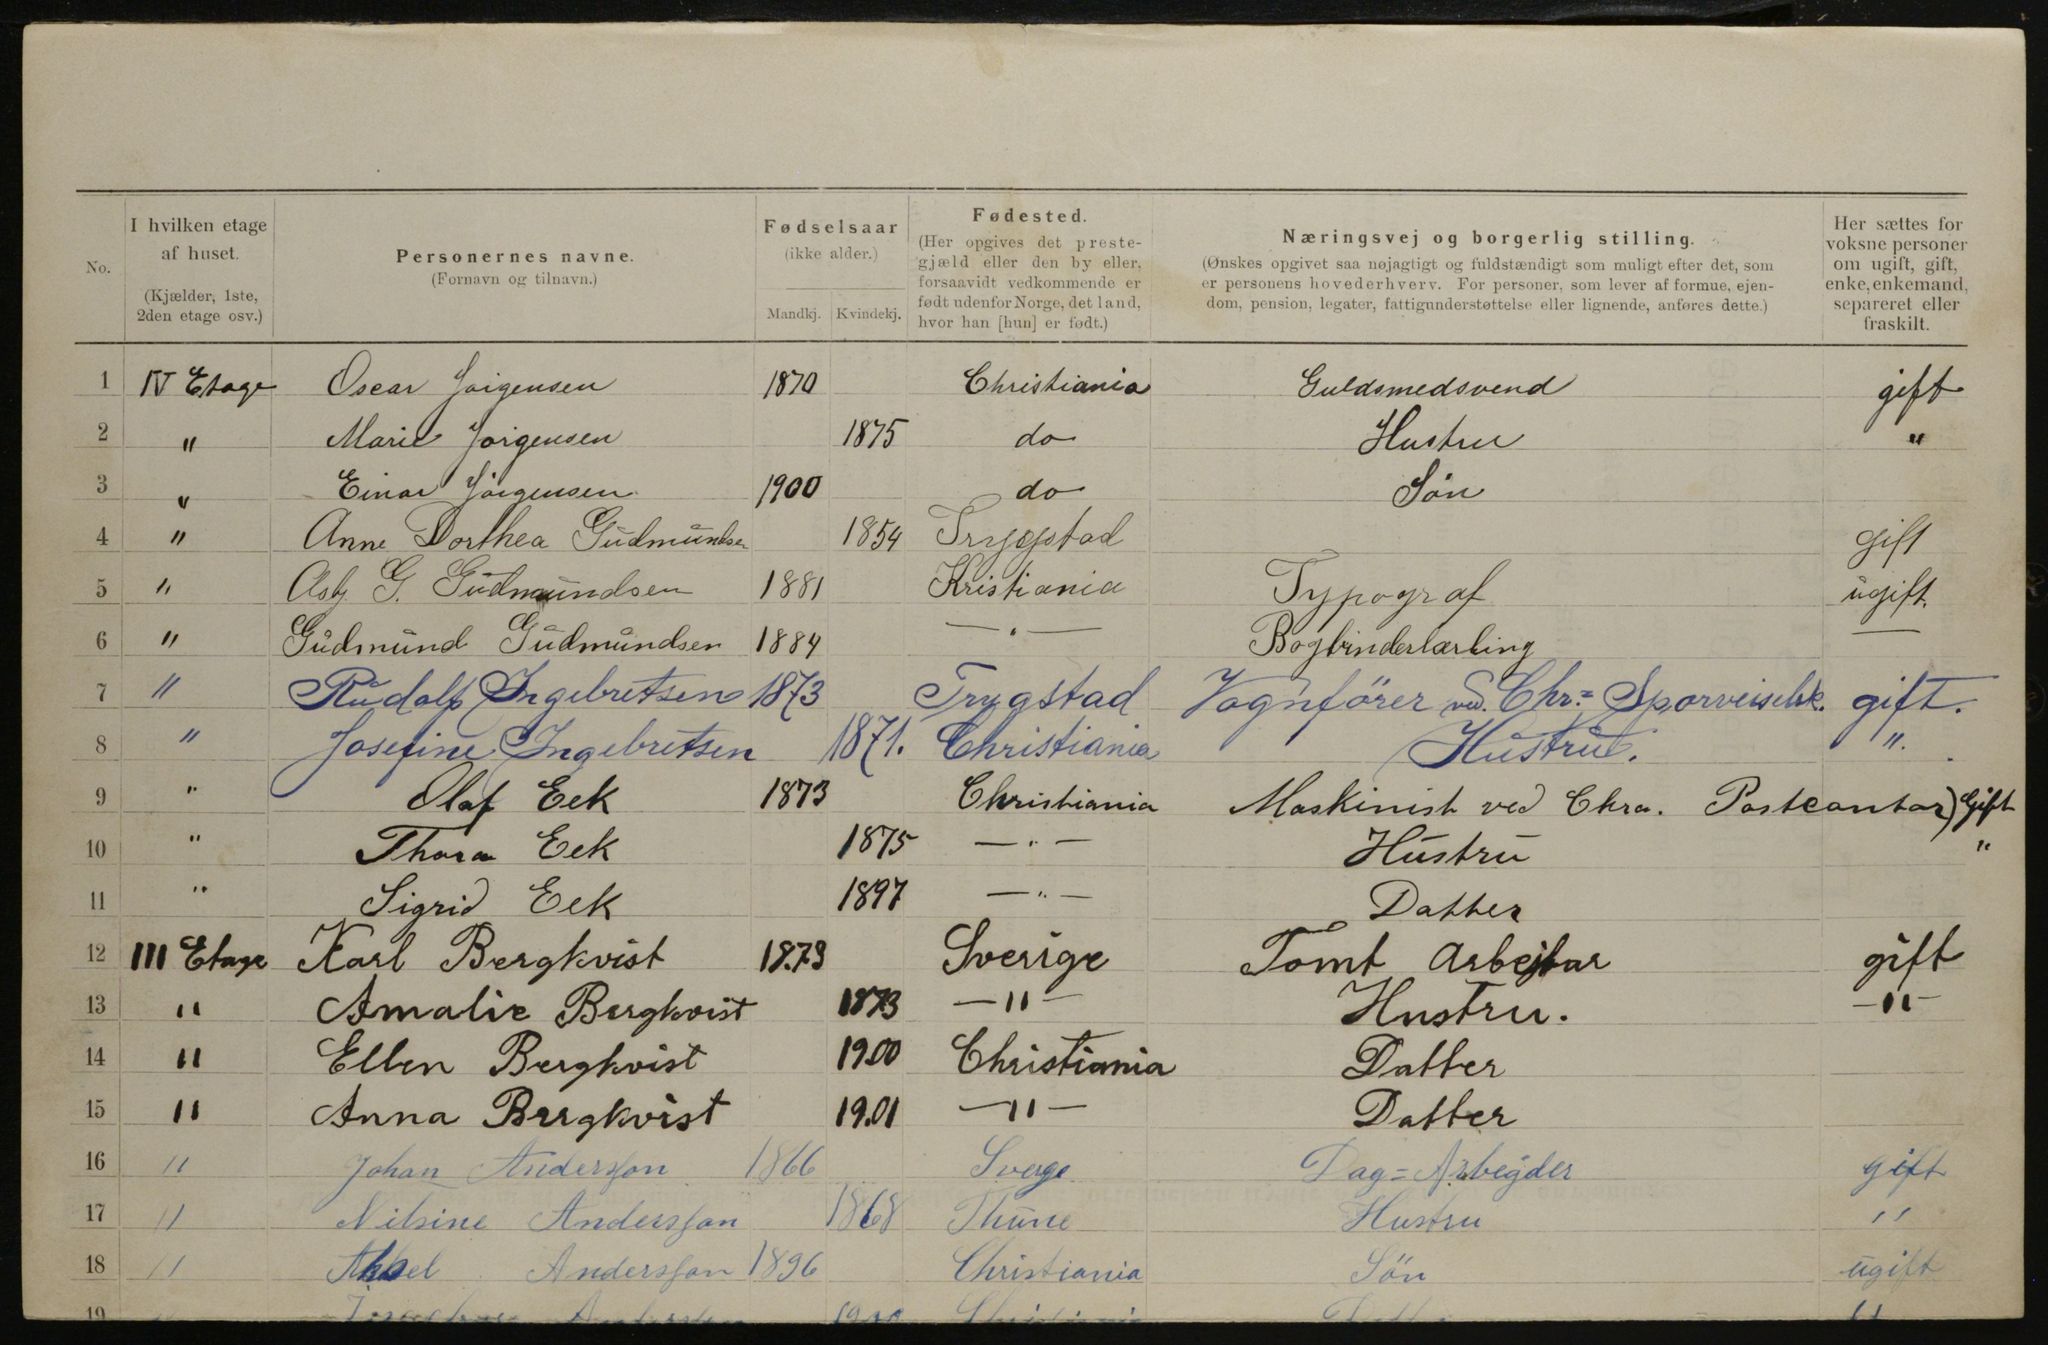 No. | I hvilken etage af huset. (Kjælder, 1ste, 2den etage osv.) | Personernes navne. (Fornavn og tilnavn.) | Fødselsaar (ikke alder.) Mandkj. Kvindekj. | Fødested. (Her opgives det prestegjæld eller den by eller, forsaavidt vedkommende er født udenfor Norge, det land, hvor han [hun] er født.) | Næringsvej og borgerlig stilling. (Ønskes opgivet saa nøjagtigt og fuldstændigt som muligt efter det, som er personens hovederhverv. For personer, som lever af formue, ejendom, pension, legater, fattigunderstøttelse eller lignende, anføres dette.) | Her sættes for voksne personer om ugift, gift, enke, enkemand, separeret eller fraskilt.
1 IV Etage Oscar Jørgensen 1870 Christiania Guldsmedsvend gift
2 " Marie Jørgensen 1875 do Hustru "
3 " Einar Jørgensen 1900 do Søn
4 " Anne Dorthea Gudmundsen 1854 Trygstad gift
5 " Asbj. G. Gudmundsen 1881 Kristiania Typograf ugift.
6 " Gudmund Gudmundsen 1884 — " — Bogbinderlærling —
7 " Rudolf Ingebretsen 1873 Trygstad Vognförer ved. Chr= Sporveiselsk. gift.
8 " Josefine Ingebretsen 1871. Christiania Hustru. ".
9 " Olaf Eek 1873 Christiania Maskinist ved Chra. Postcontor) Gift
10 " Thora Eek 1875 — " — Hustru "
11 " Sigrid Eek 1897 — " — Datter
12 III Etage Karl Bergkvist 1873 Sverige Tomt Arbejtar gift
13 " Amalie Bergkvist 1873 — " — Hustru. — " —
14 " Ellen Bergkvist 19.00 Christiania Datter
15 " Anna Bergkvist 19.01 — " — Datter
16 " Johan Andersson 1866 Sverge Dag=Arbeijder gift
17 " Nilsine Andersson 1868 Thune Hustru "
18 " Aksel Andersson 1896 Christiania Sön ugift
19